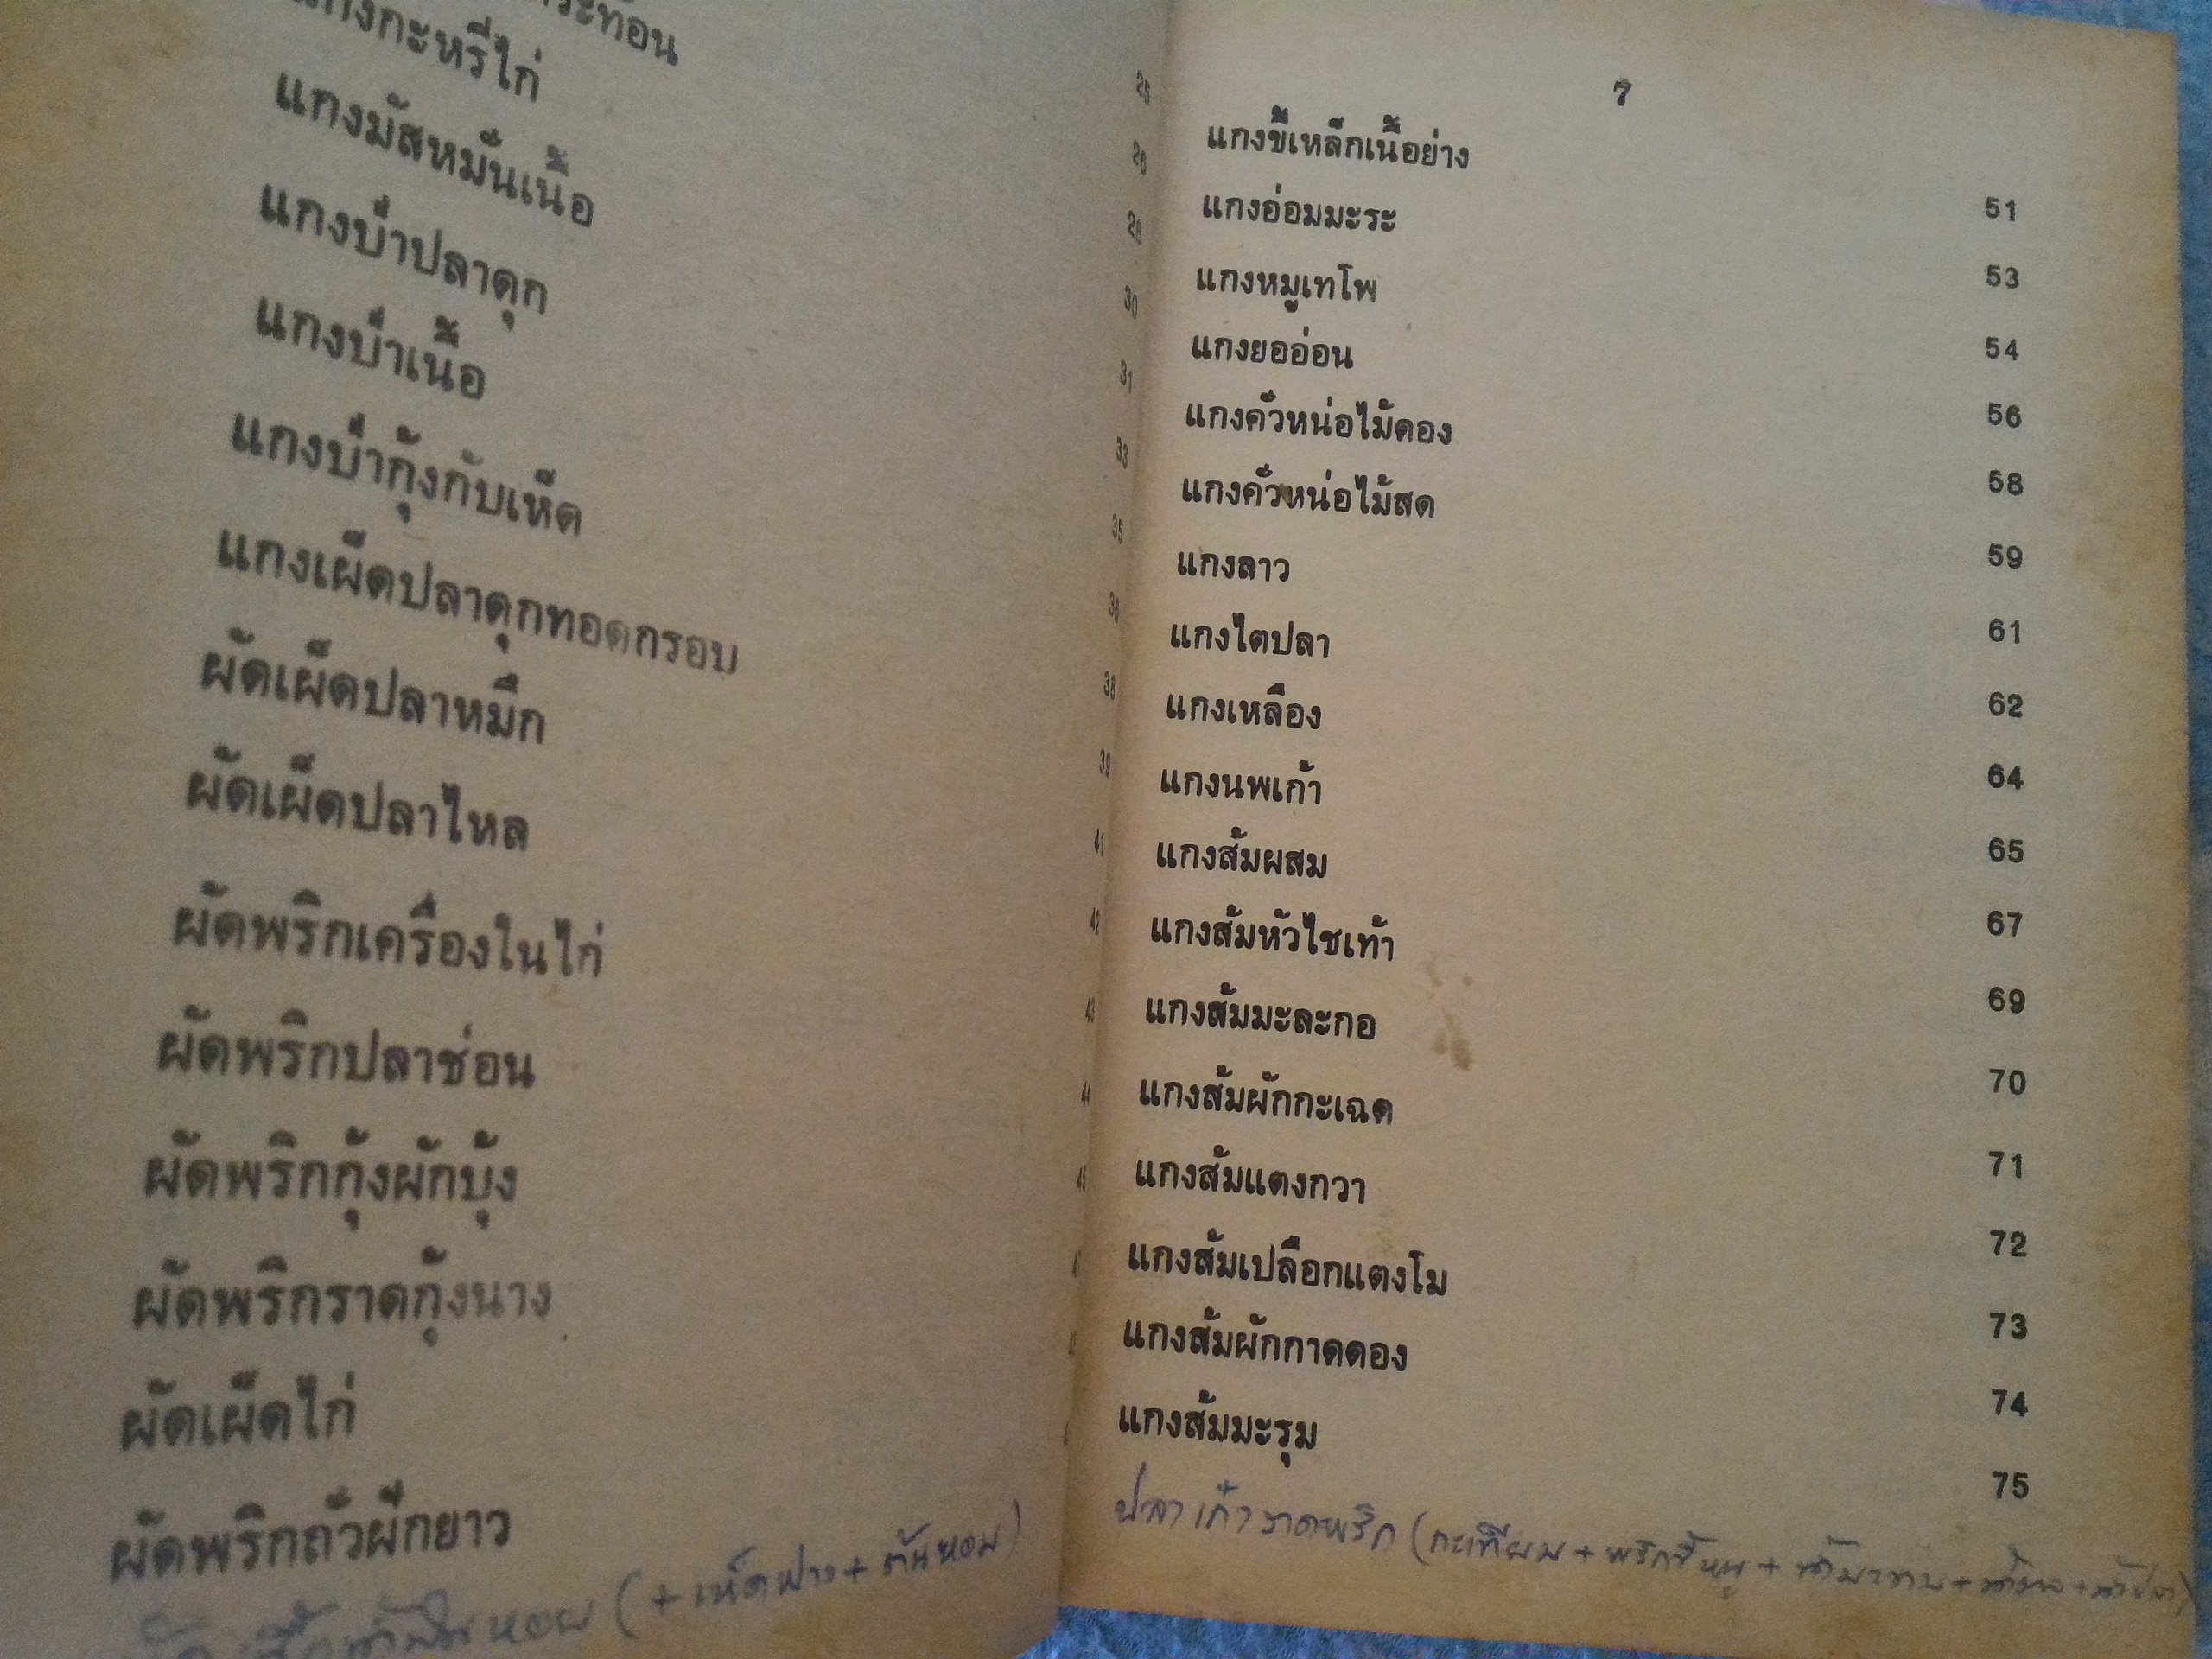 แกงกะหรี่ไก่
แกงมัสหมั่นเนื้อ
แกงป่าปลาดุก
แกงป่าเนื้อ
แกงป่ากุ้งกับเห็ด
แกงเผ็ดปลาดุกทอดกรอบ
ผัดเผ็ดปลาหมึก
ผัดเผ็ดปลาไหล
ผัดพริกเครื่องในไก่
ผัดพริกปลาช่อน
ผัดพริกกุ้งผักบุ้ง
ผัดพริกราดกุ้งนาง
ผัดเผ็ดไก่
ผัดพริกถั่วฝักยาว
(+ เห็ดฟาง + ต้นหอม)
25
26
28
30
31
33
35
36
38
39
41
42
43
44
45
7
แกงขี้เหล็กเนื้อย่าง 51
แกงอ่อมมะระ 53
แกงหมูเทโพ 54
แกงยออ่อน 56
แกงคั่วหน่อไม้ดอง 58
แกงคั่วหน่อไม้สด 59
แกงลาว 61
แกงไตปลา 62
แกงเหลือง 64
แกงนพเก้า 65
แกงส้มผสม 67
แกงส้มหัวไชเท้า 69
แกงส้มมะละกอ 70
แกงส้มผักกะเฉด 71
แกงส้มแตงกวา 72
แกงส้มเปลือกแตงโม 73
แกงส้มผักกาดดอง 74
แกงส้มมะรุม 75
ปลาเก๋าราดพริก (กะเทียม + พริกขี้หนู + น้ำมะขาม + + น้ำปลา)